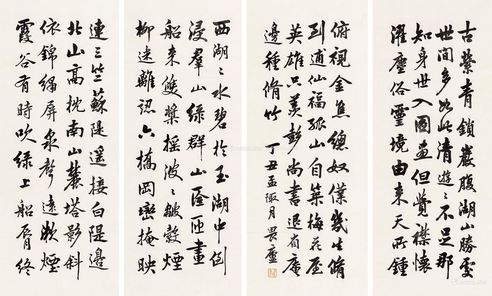 西湖之水碧於玉湖中倒
浸羣山綠群山匼匝畫
船來雙槳搖波波皺縠煙
柳迷離認六橋岡巒掩映
連三竺蘇隄遙接白隄邊
北山高枕南山麓塔影斜
依錦繡屏泉聲遠漱煙
霞谷有時吹綠上船脣終
古縈青鎖巖腹湖山勝處
世間多如此清遊遊不足那
知身世入圖畫但覺襟懷
濯塵俗靈境由來天所鍾
俯視金焦總奴僕幾生脩
到逋仙福孤山自築梅花屋
英雄只羨彭尚書退省庵
邊種脩竹 丁丑孟陬月 畏廬